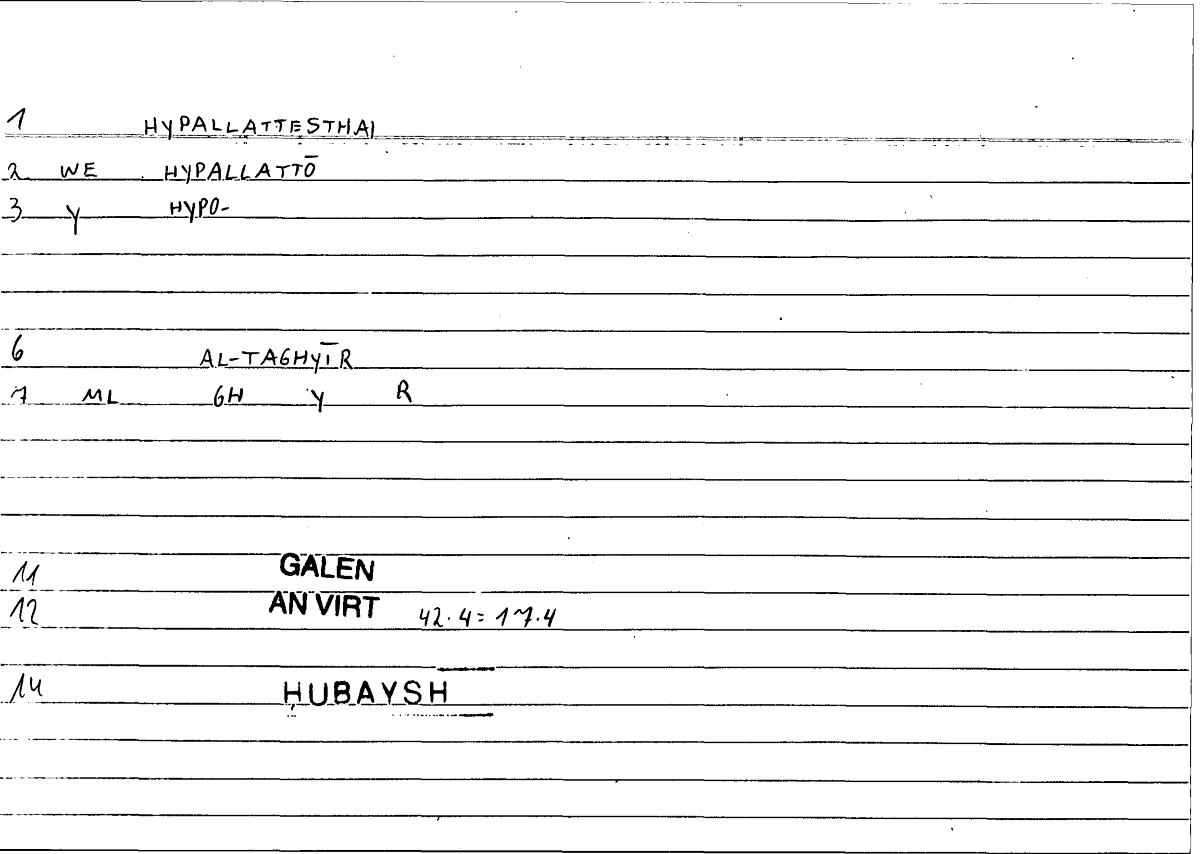 1 HYPALLATTESTHAI
2 WE HYPALLATTŌ
3 Y HYPO-
6 AL-TAGHYĪR
7 ML GH Y R
11 GALEN
12 AN VIRT 42.4=17.4
14 ḤUBAYSH